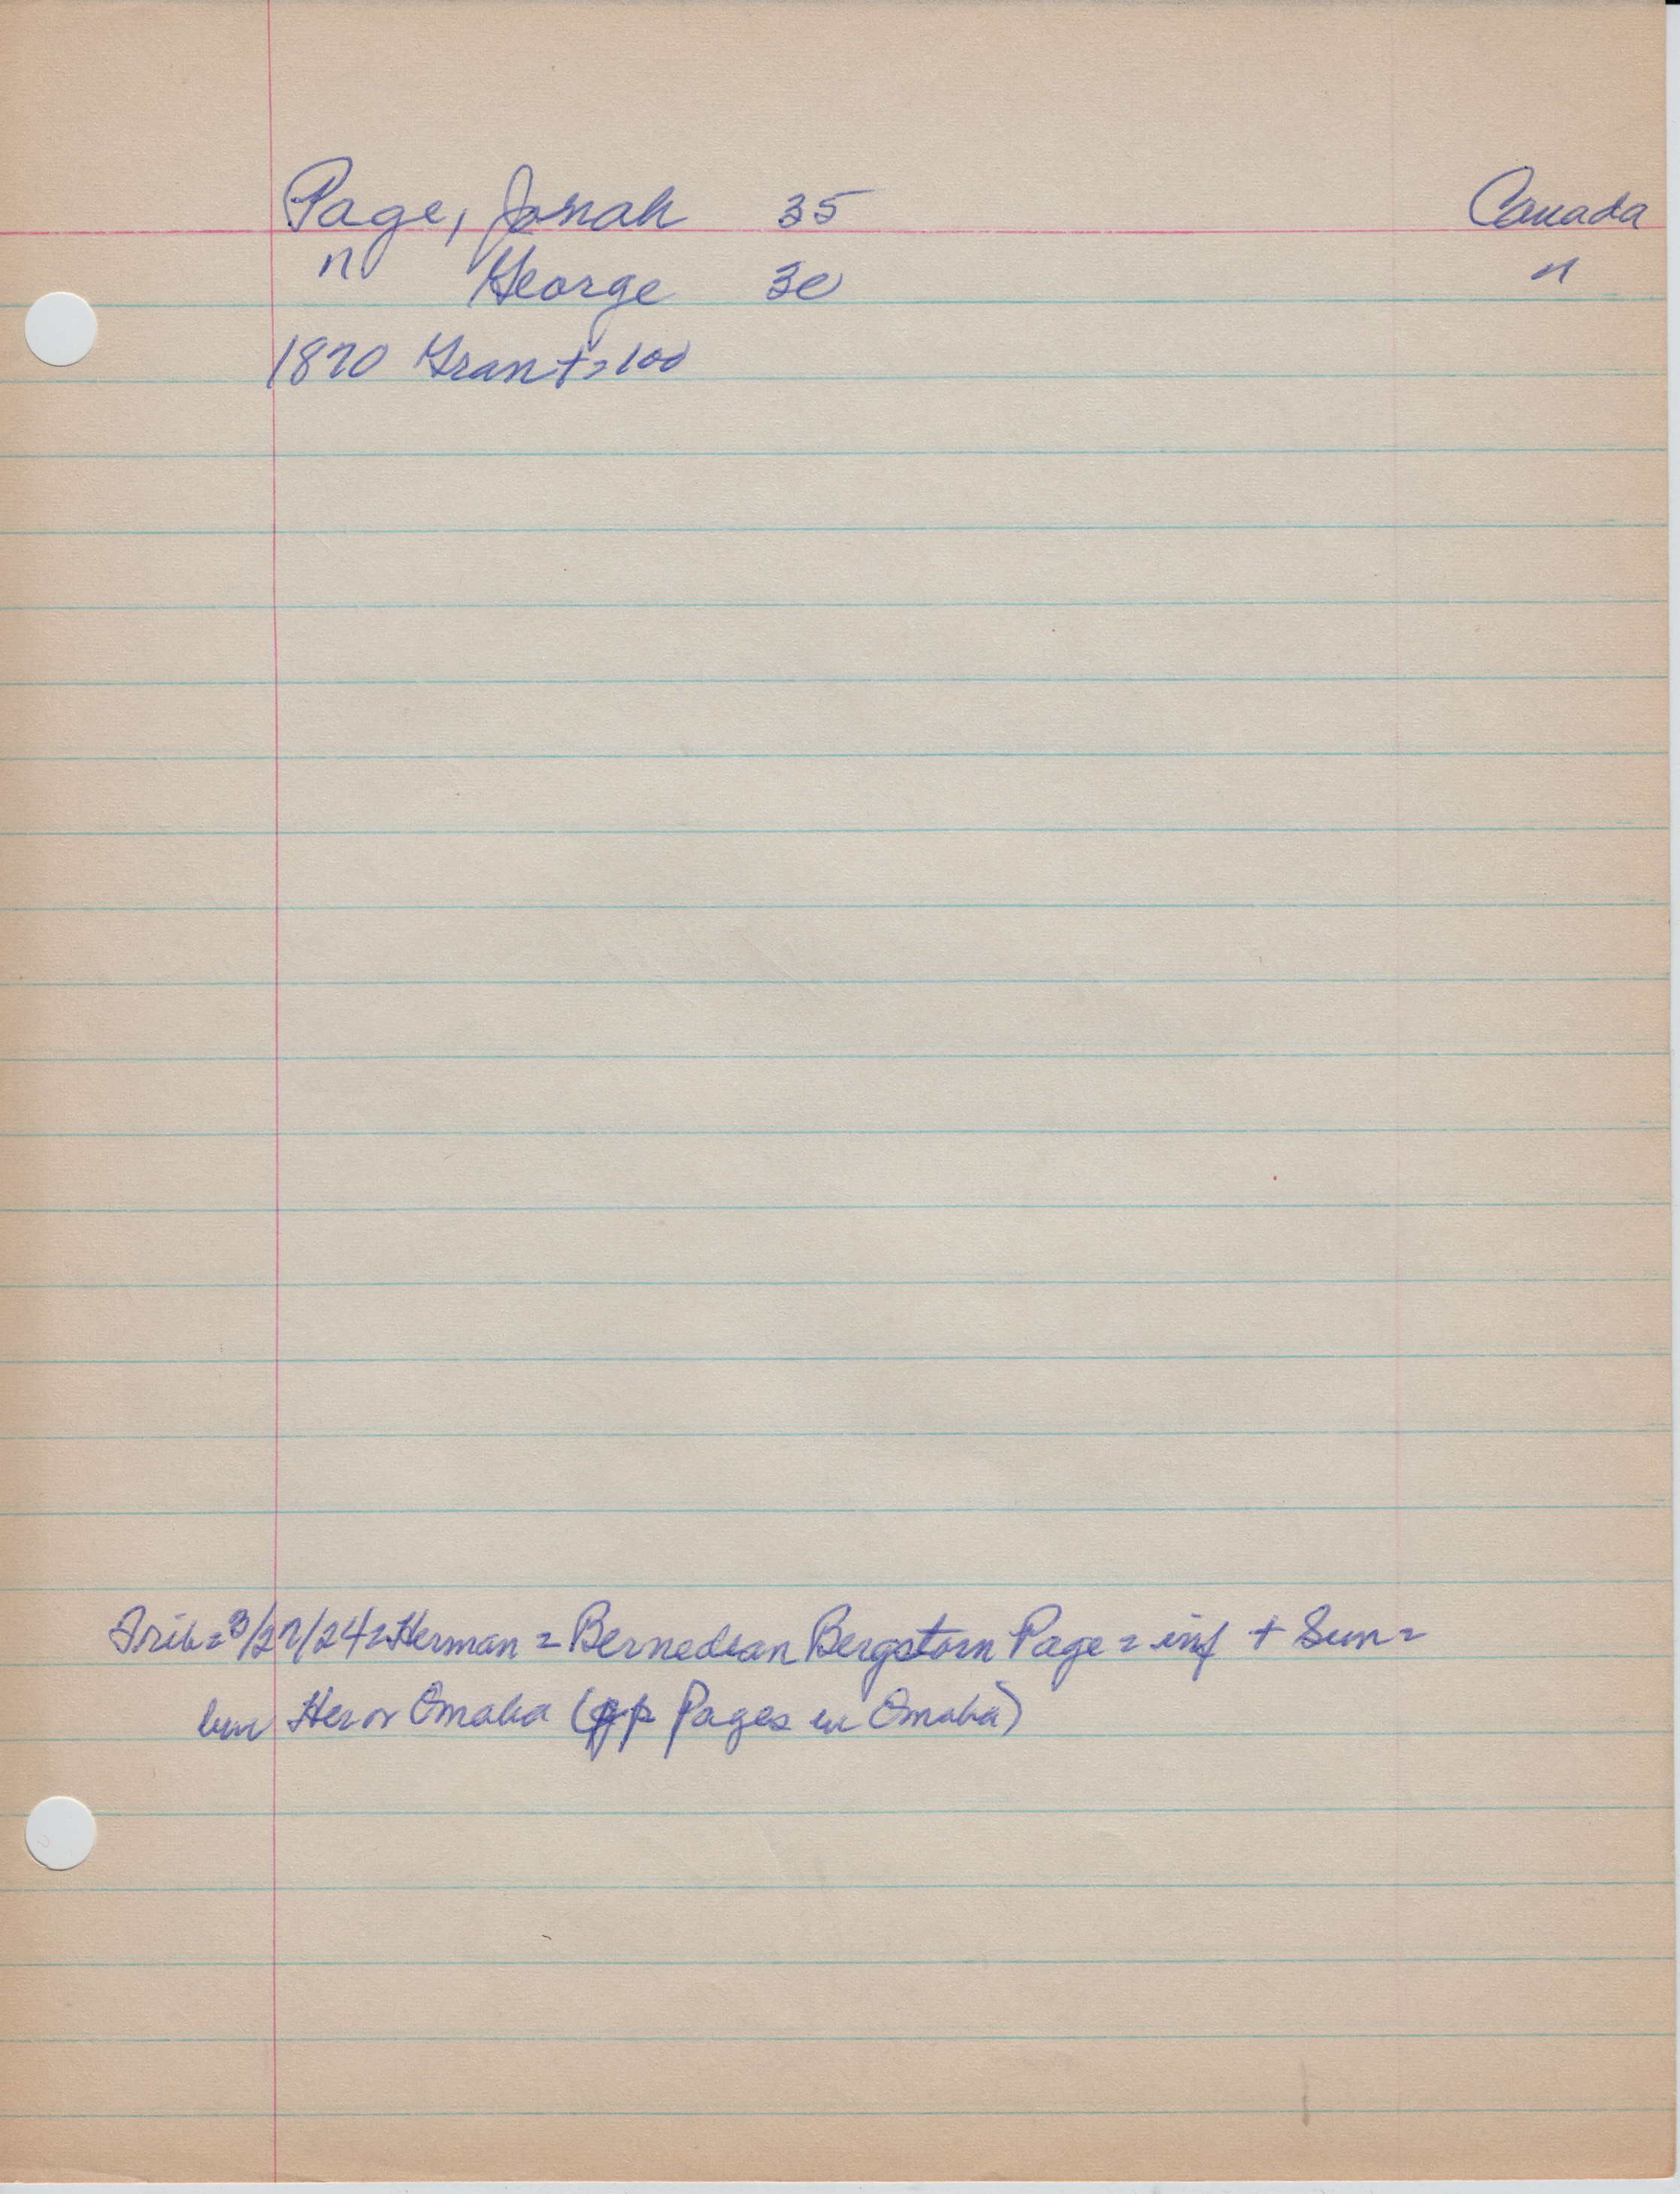 Page, Jonah 35 Canada
" George 30 "
1870 Grant=100
Trib=3/27/24=Herman=Bernedean Bergstorn Page=inf + Sun=
bur Her or Omaha (gp Pages in Omaha)